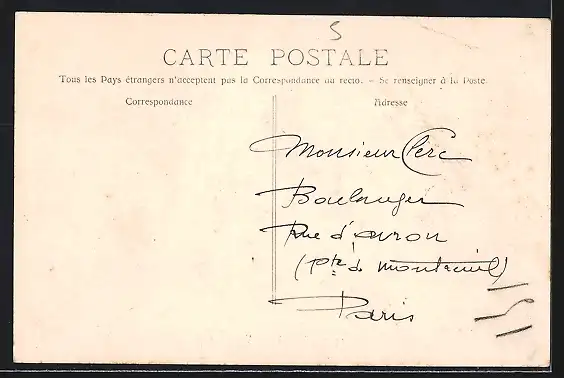 5
CARTE POSTALE
Tous les Pays étrangers n'acceptent pas la Correspondance au recto. - Se renseigner à la Poste
Correspondance
Adresse
Monsieur Clerc
Boulanger
Rue d'avron
(Pte de Montreuil)
Paris